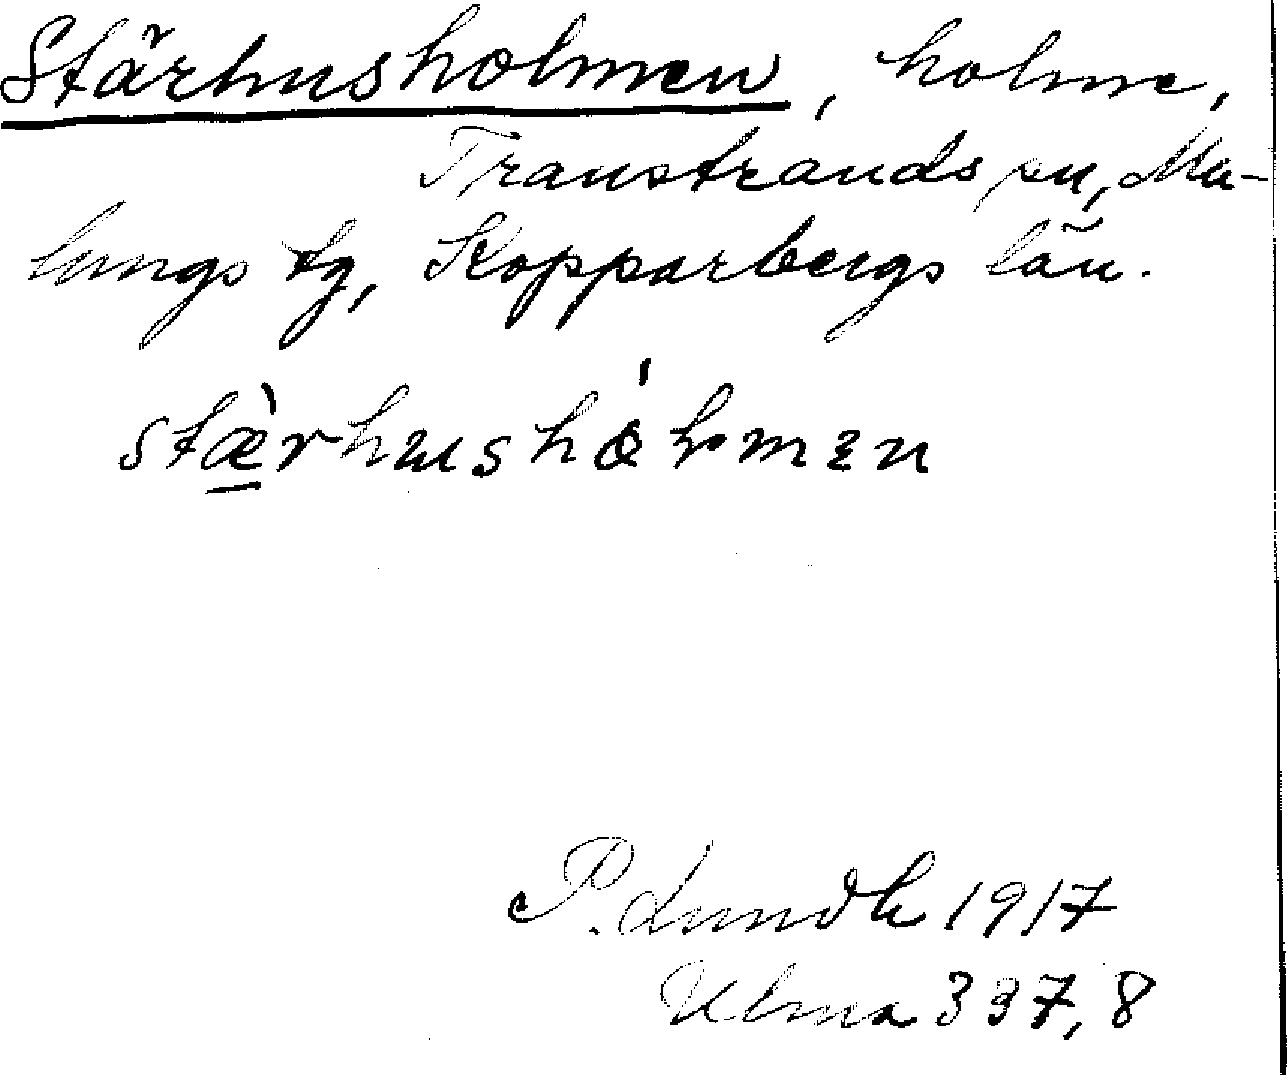 Stärhusholmen, holme,
Transtrands sn, Ma-
lungs tg, Kopparbergs län.
stæ̠̀rhushόlmen
P. Lundh 1917
Ulma 337, 8